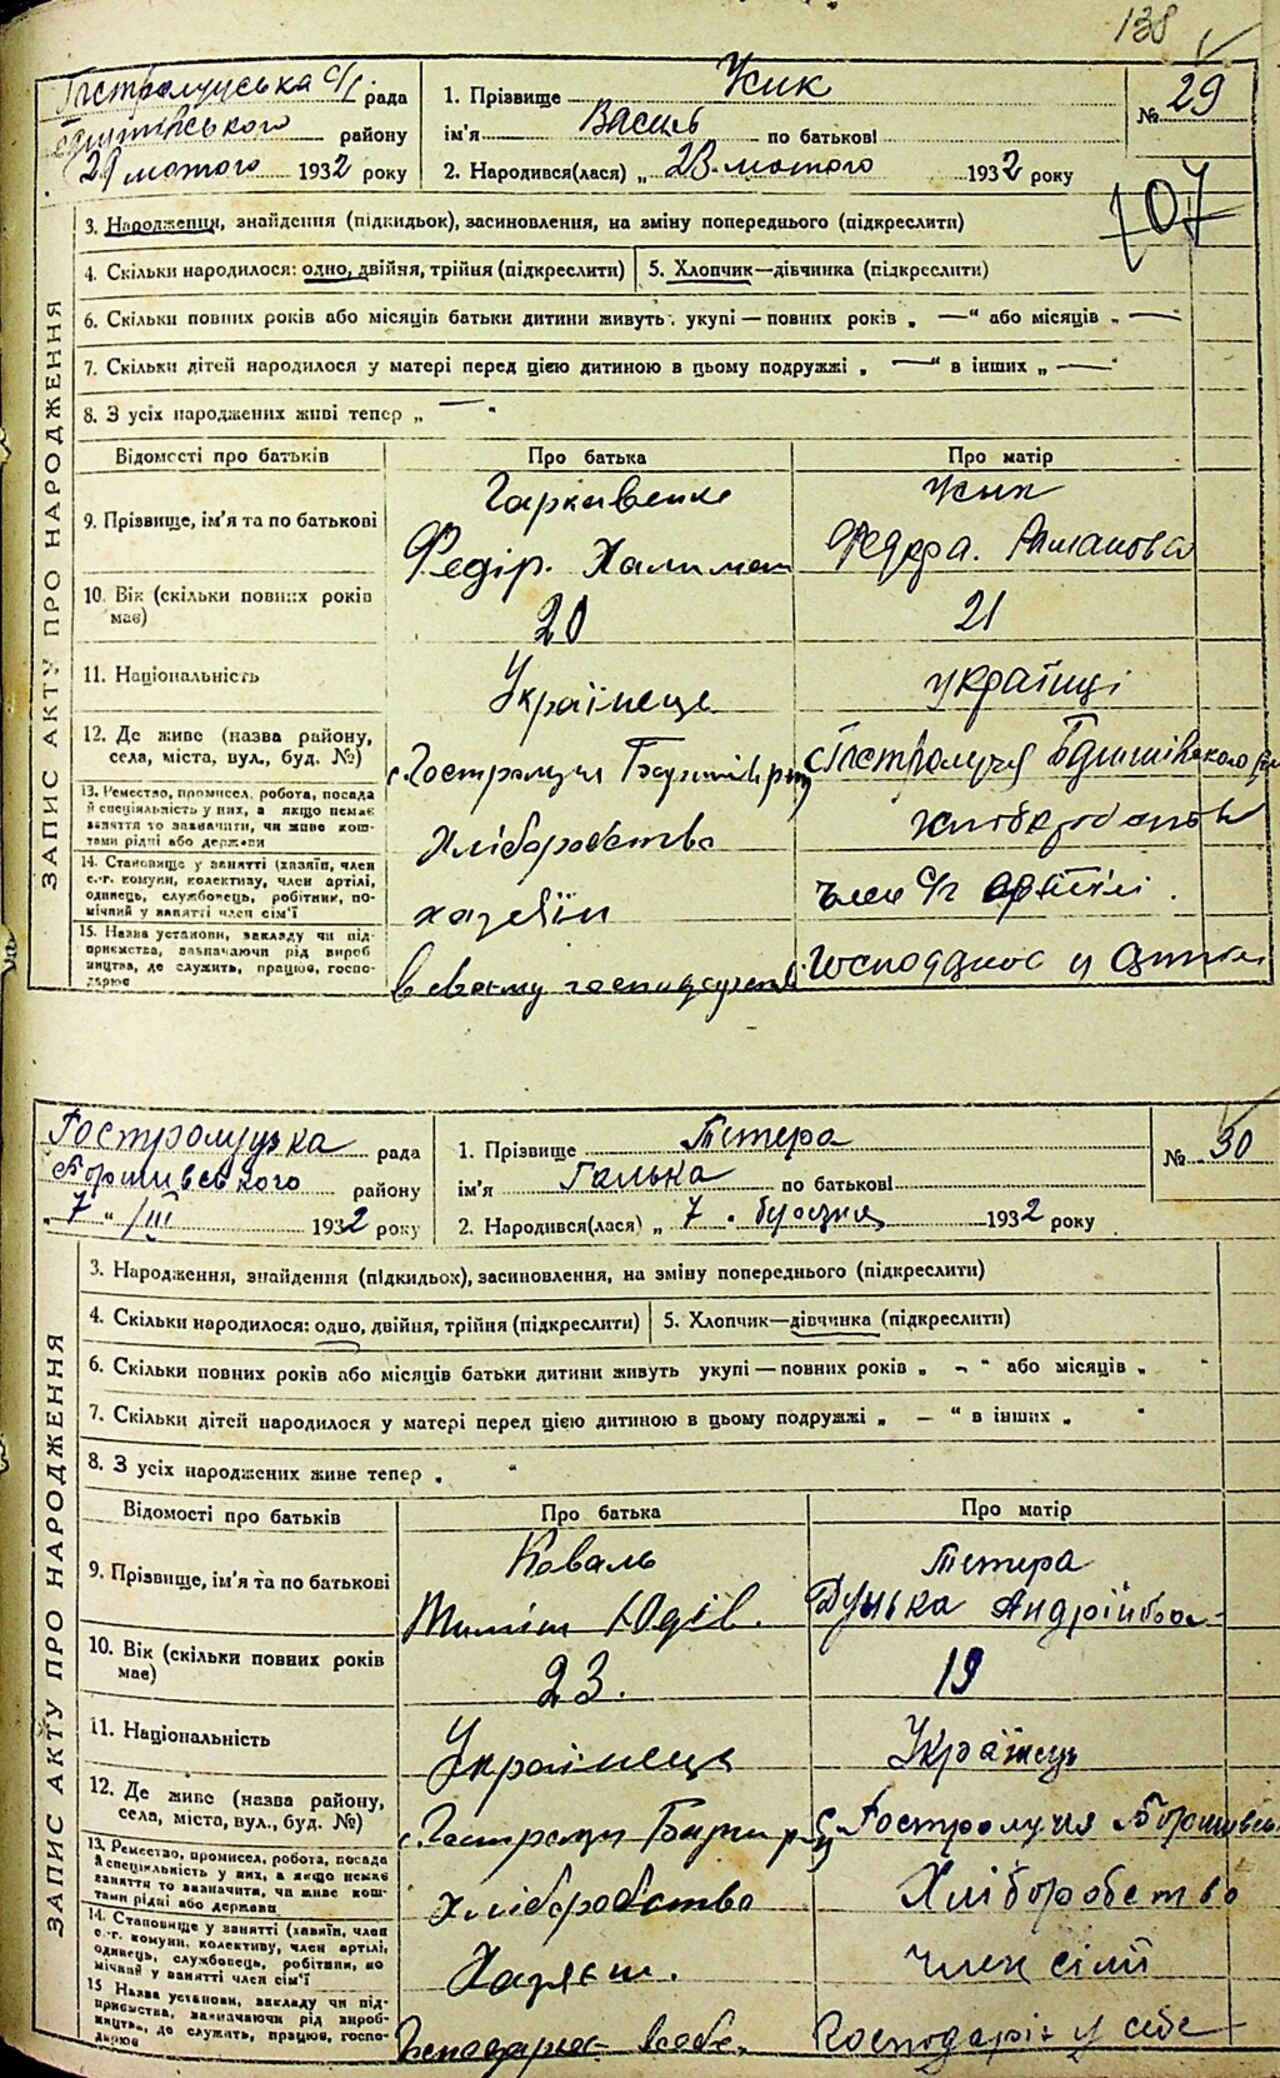 138
Гостролуцька с/р. рада
району
29 лютого 1932 року
1. Прізвище Усик
ім'я Василь по батькові
2. Народився(лася) „ 23. лютого 1932 року
№ 29
107
3. Народження, знайдення (підкидьок), засиновлення, на зміну попереднього (підкреслити)
4. Скільки народилося: одно, двійня, трійня (підкреслити)
5. Хлопчик—дівчинка (підкреслити)
6. Скільки повних років або місяців батьки дитини живуть укупі — повних років „ —“ або місяців „ —
7. Скільки дітей народилося у матері перед цією дитиною в цьому подружжі „ —“ в інших „ —
8. З усіх народжених живі тепер „ — “
ЗАПИС АКТУ ПРО НАРОДЖЕННЯ
Відомості про батьків
Про батька
Про матір
9. Прізвище, ім'я та по батькові
Гаркавенко
Федір.
Усик
Федора.
10. Вік (скільки повних років має)
20
21
11. Національність
Українець
українці
12. Де живе (назва району,
села, міста, вул., буд. №)
13. Ремество, промисел, робота, посада
й спеціяльність у них, а якщо немає
заняття то зазначити, чи живе кош-
тами рідні або держави
Хліборобство
14. Становище у занятті (хазяїн, член
с.-г. комуни, колективу, член артілі,
одинець, службовець, робітник, по-
мічний у занятті член сім'ї
хазяїн
член с/г артілі.
15. Назва установи, закладу чи під-
приємства, зазначаючи рід вироб
ництва, де служить, працює, госпо-
дарює
в своєму
Гостролуцька рада
Боришівського району
„ 7 “ /III 1932 року
1. Прізвище Тетера
ім'я Галька по батькові
2. Народився(лася) „ 7 . березня 1932 року
№ 30
3. Народження, знайдення (підкидьок), засиновлення, на зміну попереднього (підкреслити)
4. Скільки народилося: одно, двійня, трійня (підкреслити)
5. Хлопчик—дівчинка (підкреслити)
6. Скільки повних років або місяців батьки дитини живуть укупі — повних років „ - “ або місяців „ “
7. Скільки дітей народилося у матері перед цією дитиною в цьому подружжі „ — “ в інших „ “
8. З усіх народжених живе тепер „ “
ЗАПИС АКТУ ПРО НАРОДЖЕННЯ
Відомості про батьків
Про батька
Про матір
9. Прізвище, ім'я та по батькові
Коваль
Тетера
Дунька Андріївна
10. Вік (скільки повних років
має)
23.
19
11. Національність
Українець
Українець
12. Де живе (назва району,
села, міста, вул., буд. №)
с. Гостролуччя
13. Ремество, промисел, робота, посада
й спеціяльність у них, а якщо немає
заняття то зазначити, чи живе кош-
тами рідні або держави
Хліборобство
Хліборобство
14. Становище у занятті (хазяїн, член
с.-г. комуни, колективу, член артілі,
одинець, службовець, робітник, по
мічний у занятті член сім'ї
член сімії
15 Назва установи, закладу чи під-
приємства, зазначаючи рід вироб-
ництва, де служить, працює, госпо-
дарює
у себе